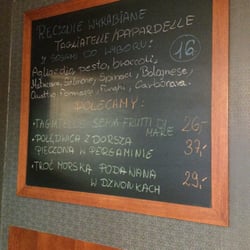 RĘCZNIE WYRABIANE
TAGLIATELLE/PAPARDELLE
Z SOSAMI DO WYBORU: 16
Pagliaccio, pesto, broccoli,
Matriciana, Salmone, Spinaci, Bolognese,
Quattro Formaggi, Funghi, Carbonara.
POLECAMY:
• TAGLIATELLE SEMI FRUTTI DI MARE 26,-
• POLĘDWICA Z DORSZA
PIECZONA W PERGAMINIE 37,-
• TROĆ MORSKA PODAWANA
W DZWONKACH 29,-